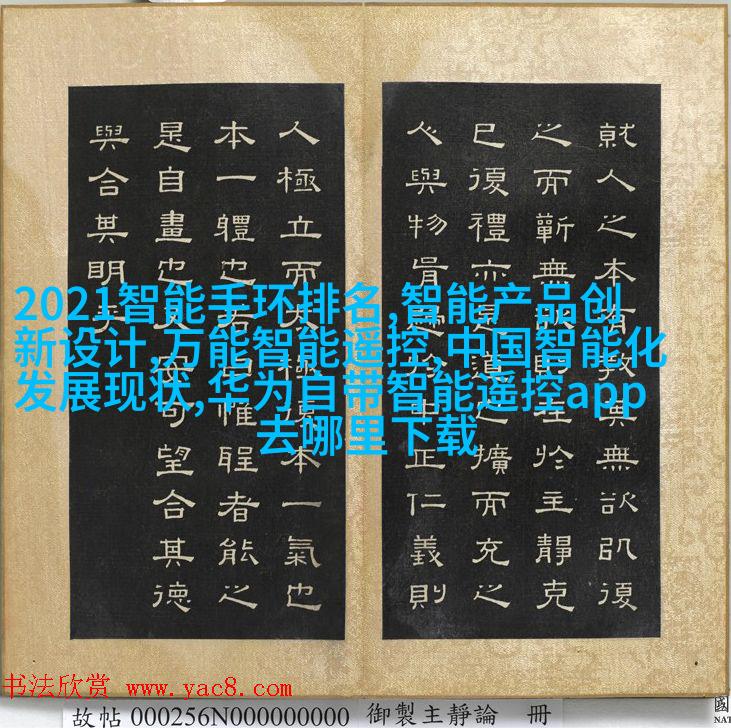 就人之本有教其無欲即復
之而靳無欲則在於主靜克
已復禮亦是道之擴而充之
人與物皆於中正仁義則
人極立而太極復本一氣也
本一體也若曰惟聖者能之
是自畫也又安可望合其德
與合其明矣
2021智能手环排名,智能产品创
新设计,万能智能遥控,中国智能化
发展现状,华为自带智能遥控app
去哪里下载
书法欣赏 www.yac8.com
故帖 000256N000000000 御製主靜論 冊
國
NAT